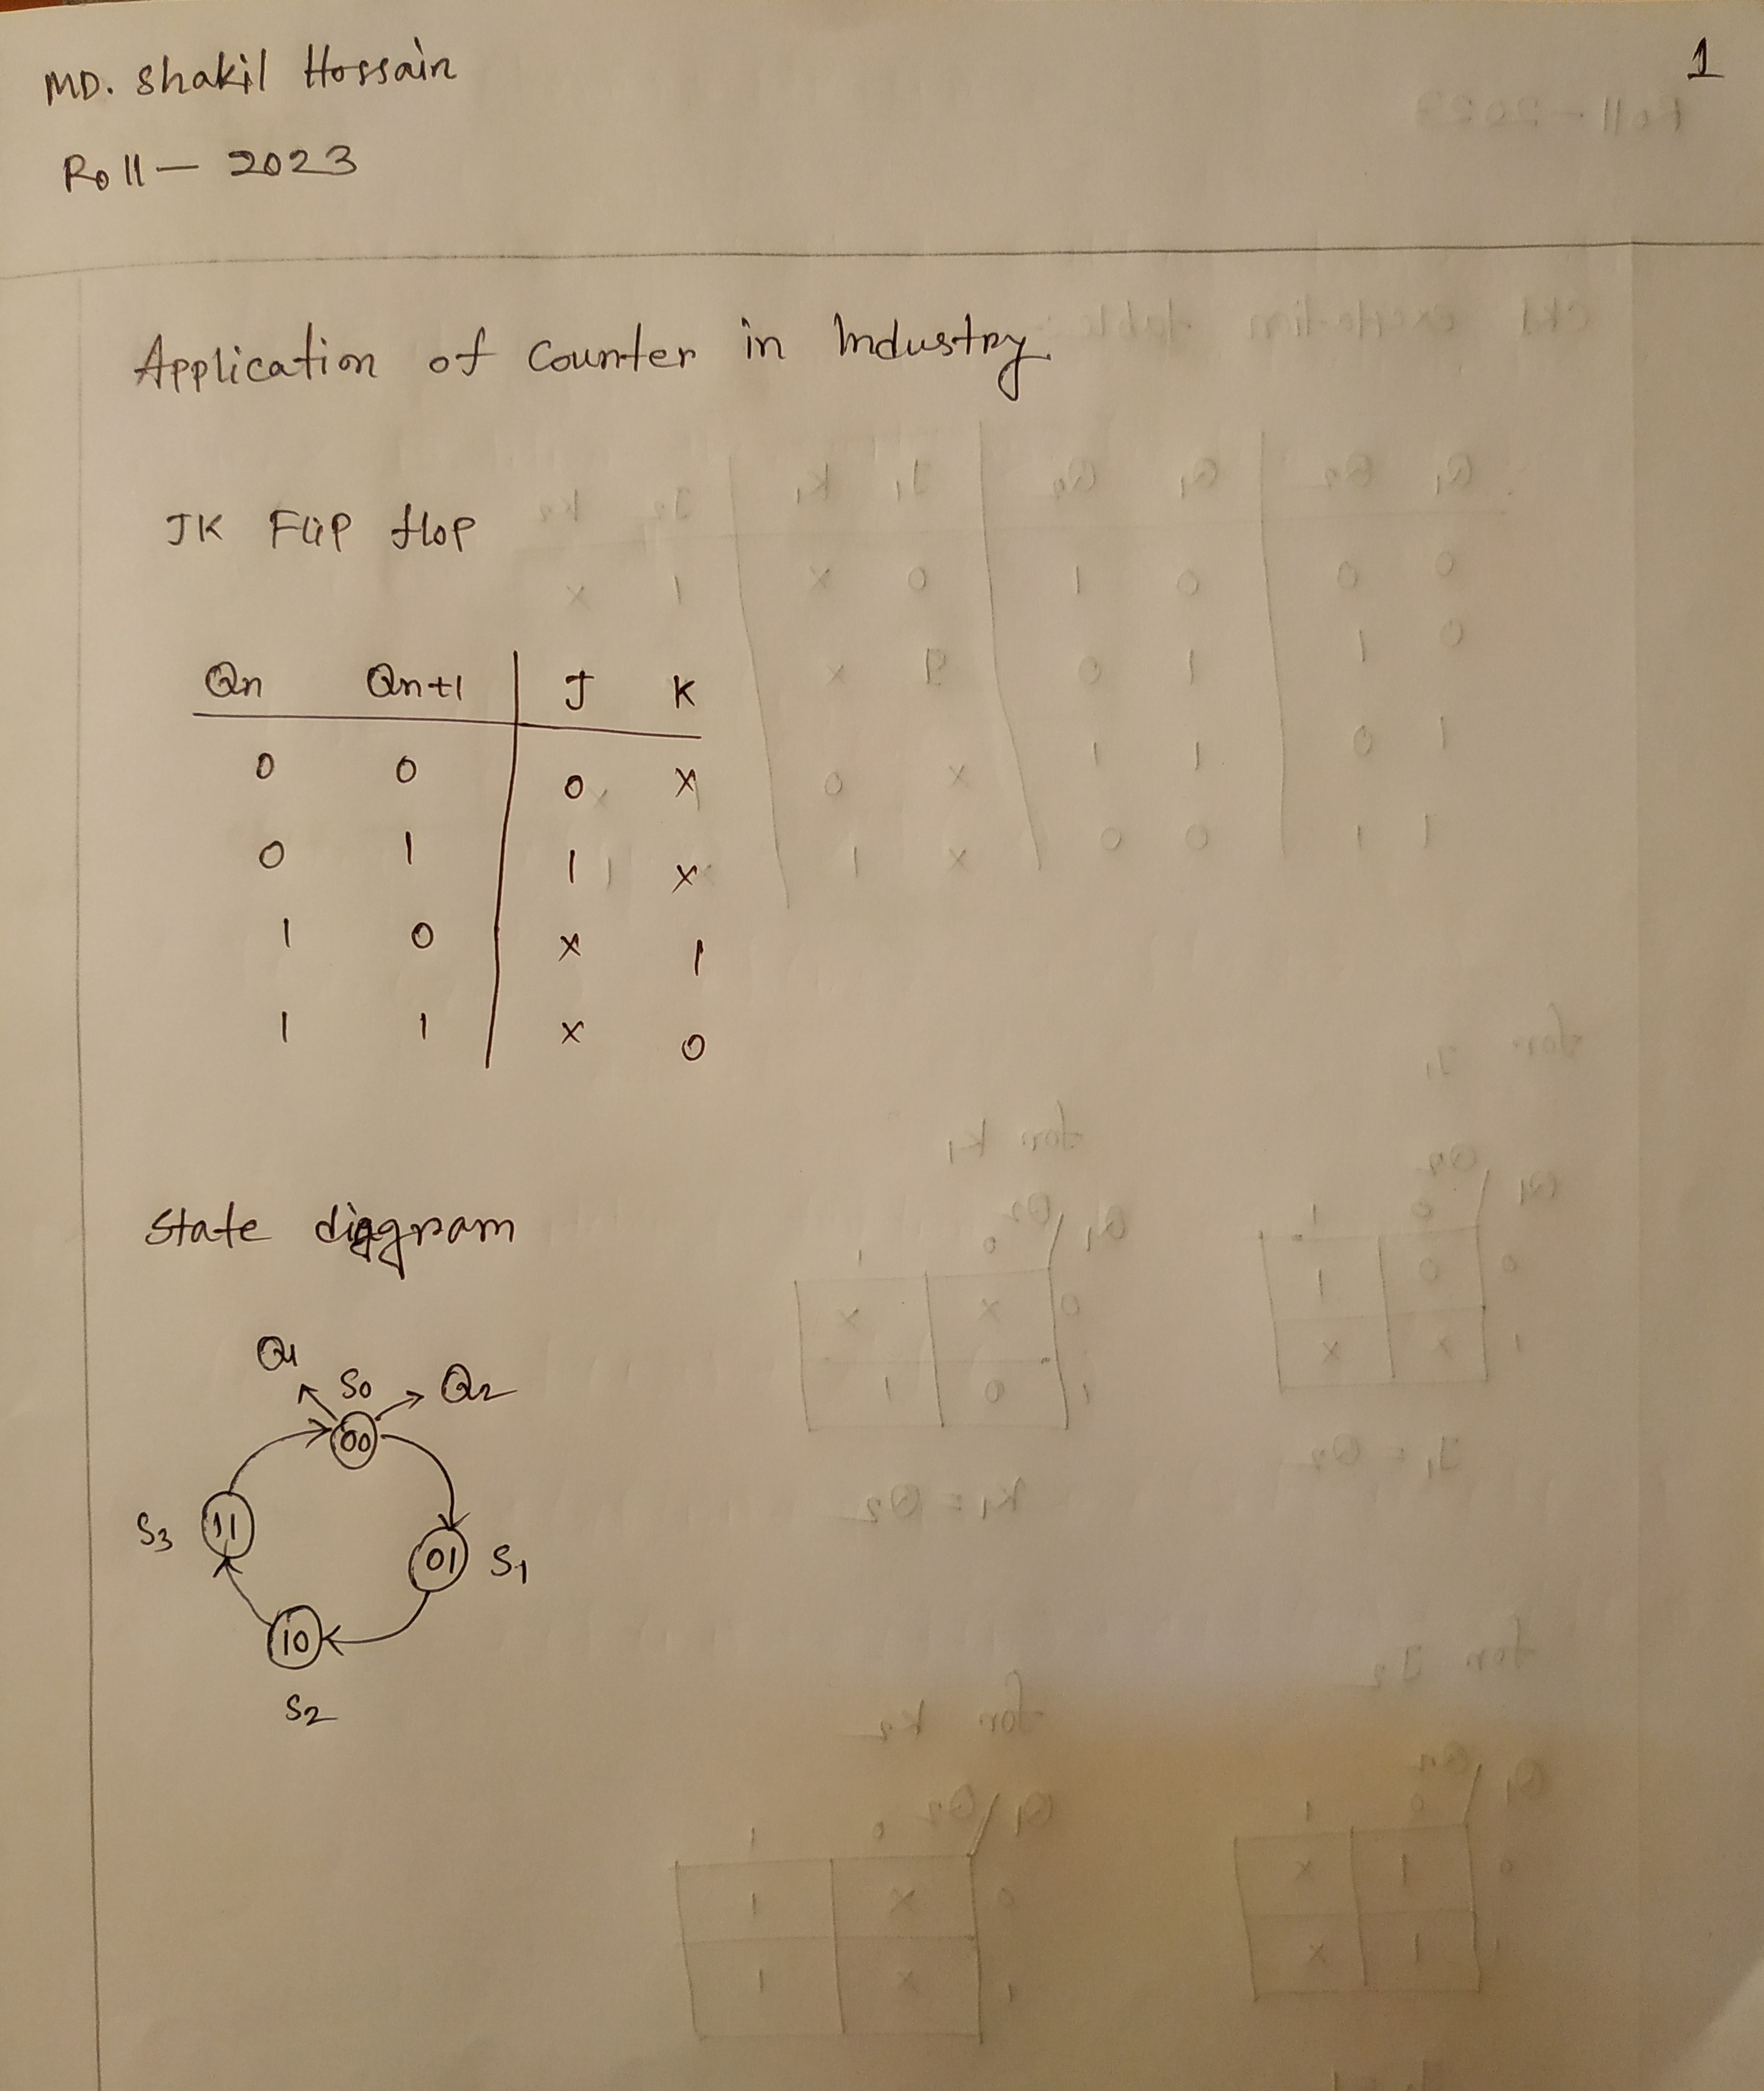 MD. Shakil Hossain
1
Roll — 2023
Application of Counter in Industry
JK Flip flop
Qn Qn+1 J K
0 0 0 X
0 1 1 X
1 0 X 1
1 1 X 0
State diagram
Q1 S0 Q2
00
S3 11
01 S1
10
S2